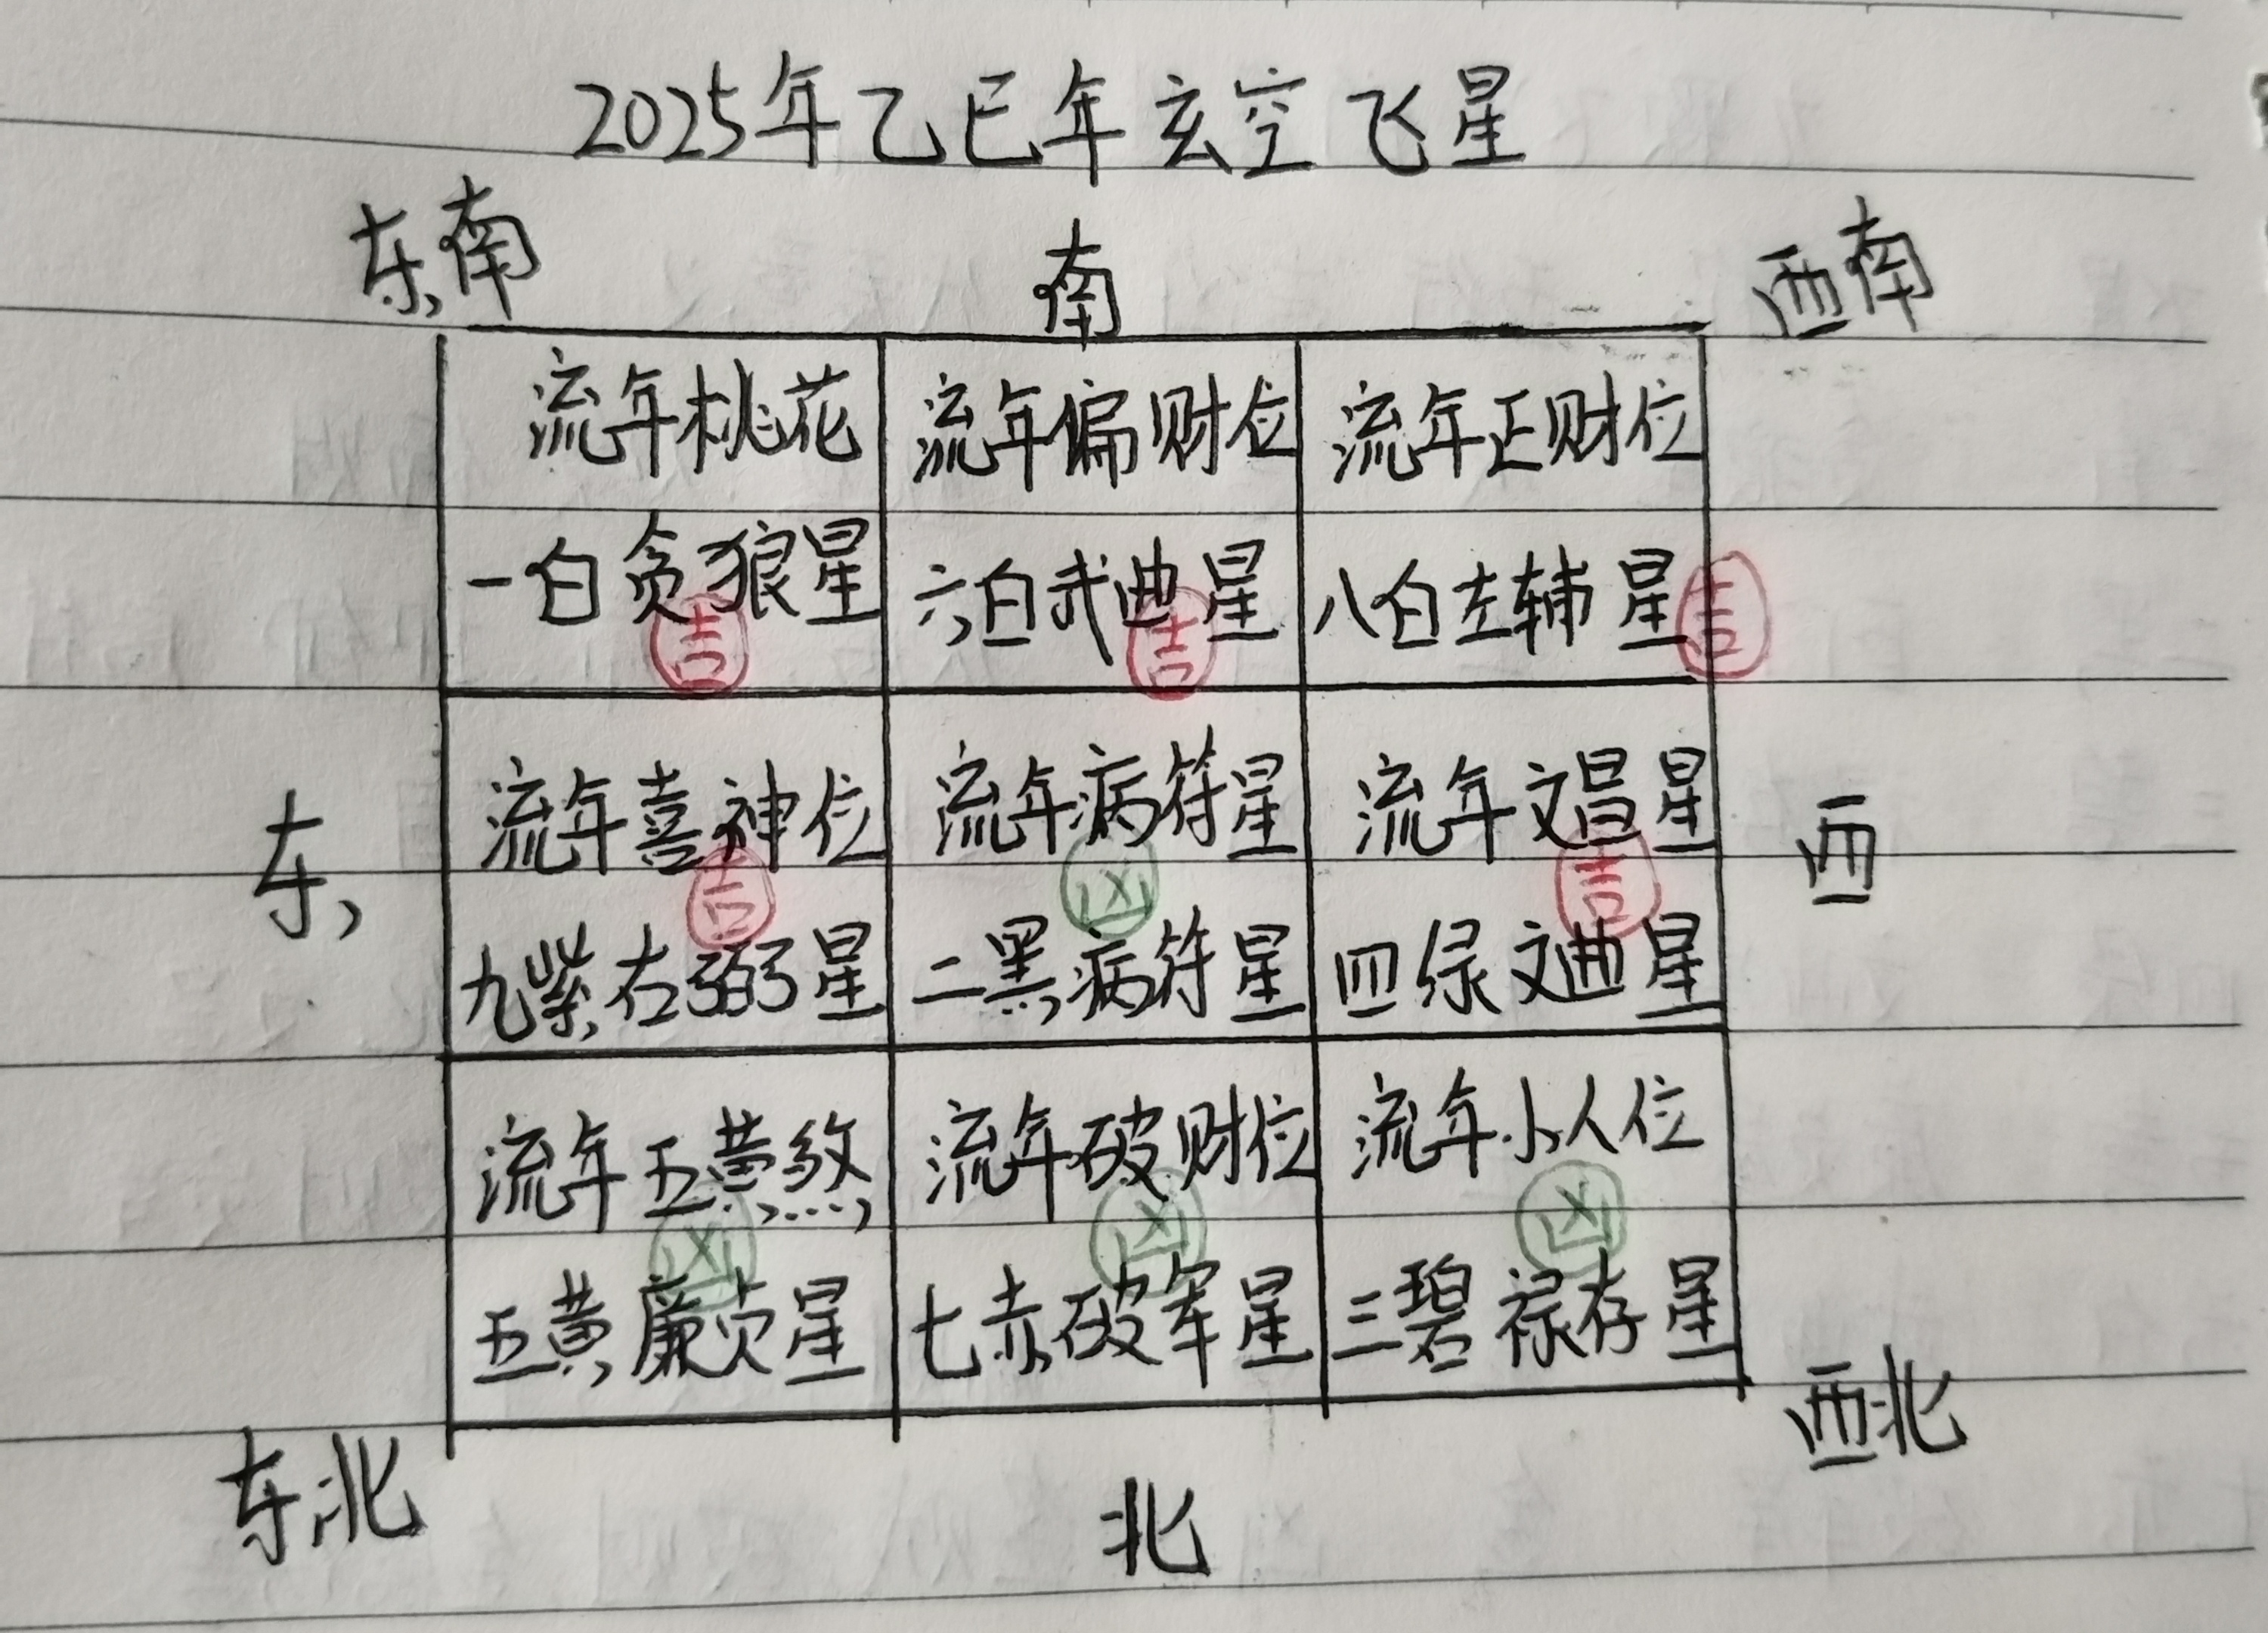 2025年乙巳年玄空飞星
东南
南
西南
流年桃花
一白贪狼星
吉
流年偏财位
六白武曲星
吉
流年正财位
八白左辅星
吉
东
流年喜神位
吉
九紫右弼星
流年病符星
凶
二黑病符星
流年文昌星
吉
四绿文曲星
西
流年五黄煞
凶
五黄廉贞星
流年破财位
凶
七赤破军星
流年小人位
凶
三碧禄存星
东北
北
西北